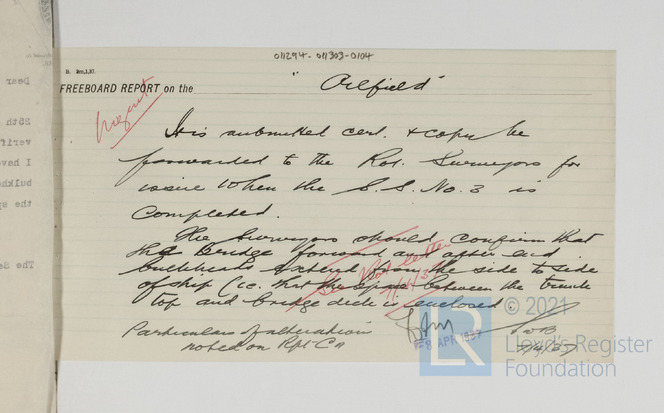 011294-011303-0104
FREEBOARD REPORT on the "Oilfield"
Urgent
It is submitted cert. & copy be
forwarded to the Rot. Surveyors for
issue when the S.S. No. 3 is
completed.
The Surveyors should confirm that
the Bridge forward and after end
bulkheads extend from the side to side
of ship (i.e. that the space between the trunk
top and bridge deck is enclosed.
See Rot letter
Particulars of alteration
noted on Rpt C11
8 APR 1937
7/4/37
Dear
25th
verif
I have
bulkhe
the sp
The Se
© 2021
LR
Lloyd's Register
Foundation